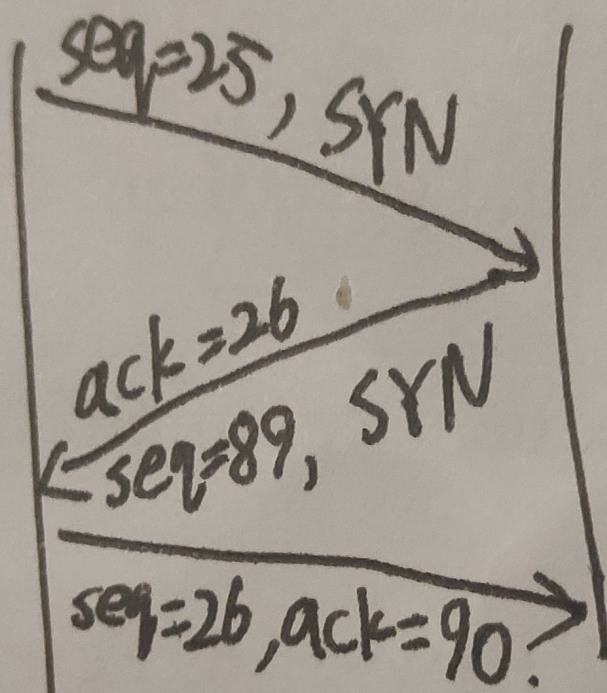 seq=25, SYN
ack=26
seq=89, SYN
seq=26, ack=90.